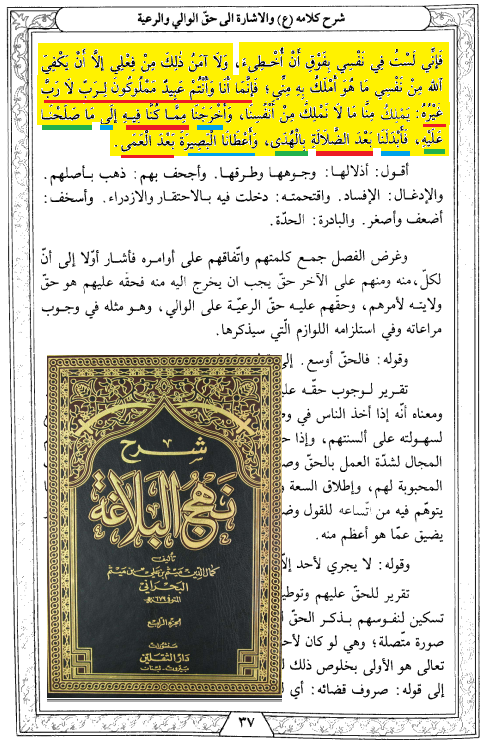 شرح كلامه (ع) والاشارة الى حقّ الوالي والرعية
فَإِنِّي لَسْتُ فِي نَفْسِي بِفَوْقِ أَنْ أُخْطِىءَ، وَلَا آمَنُ ذٰلِكَ مِنْ فِعْلِي إِلاَّ أَنْ يَكْفِيَ
آللهُ مِنْ نَفْسِي مَا هُوَ أَمْلَكُ بِهِ مِنِّي؛ فَإِنَّمَا أَنَا وَأَنْتُمْ عَبِيدٌ مَمْلُوكُونَ لِرَبٍّ لَا رَبَّ
غَيْرُهُ: يَمْلِكُ مِنَّا مَا لَا نَمْلِكُ مِنْ أَنْفُسِنَا، وَأَخْرَجَنَا مِمَّا كُنَّا فِيهِ إِلَى مَا صَلَحْنَا
عَلَيْهِ، فَأَبْدَلَنَا بَعْدَ الضَّلَالَةِ بِالْهُدَى، وَأَعْطَانَا الْبَصِيرَةَ بَعْدَ الْعَمَى.
أقول: أذلالها: وجوهها وطرقها. وأجحف بهم: ذهب بأصلهم.
والإدغال: الإفساد. واقتحمته: دخلت فيه بالاحتقار والازدراء. وأسخف:
أضعف وأصغر. والبادرة: الحدّة.
وغرض الفصل جمع كلمتهم واتّفاقهم على أوامره فأشار أوّلا إلى أنّ
لكلّ، منه ومنهم على الآخر حقّ يجب ان يخرج اليه منه فحقّه عليهم هو حقّ
ولايته لأمرهم، وحقّهم عليه حقّ الرعيّة على الوالي، وهو مثله في وجوب
مراعاته وفي استلزامه اللوازم الّتي سيذكرها.
وقوله: فالحقّ أوسع. إلى
تقرير لوجوب حقّه
ومعناه أنّه إذا أخذ الناس في
لسهولته على ألسنتهم، وإذا
المجال لشدّة العمل بالحقّ
المحبوبة لهم، وإطلاق السعة
يتوهّم فيه من اتّساعه للقول
يضيق عمّا هو أعظم منه.
وقوله: لا يجري لأحد إلّا
تقرير للحقّ عليهم
تسكين لنفوسهم بذكر الحقّ
صورة متّصلة؛ وهي لو كان
تعالى هو الأولى بخلوص ذلك
إلى قوله: صروف قضائه: أي
شرح
نهج البلاغة
تأليف
كمال الدين ميثم بن علي بن ميثم
البحراني
المتوفى ٦٧٩ هـ
الجزء الرابع
منشورات
دار الثقلين
بيروت - لبنان
٣٧